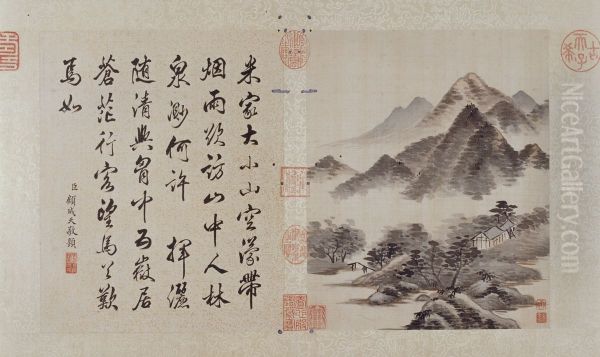 米家大小山空濛帶
烟雨欲訪山中人林
泉渺何許 揮灑
隨清興胷中五嶽居
蒼茫行客望歎
焉如
臣顧成天敬題
古希天子
NiceArtGallery.com